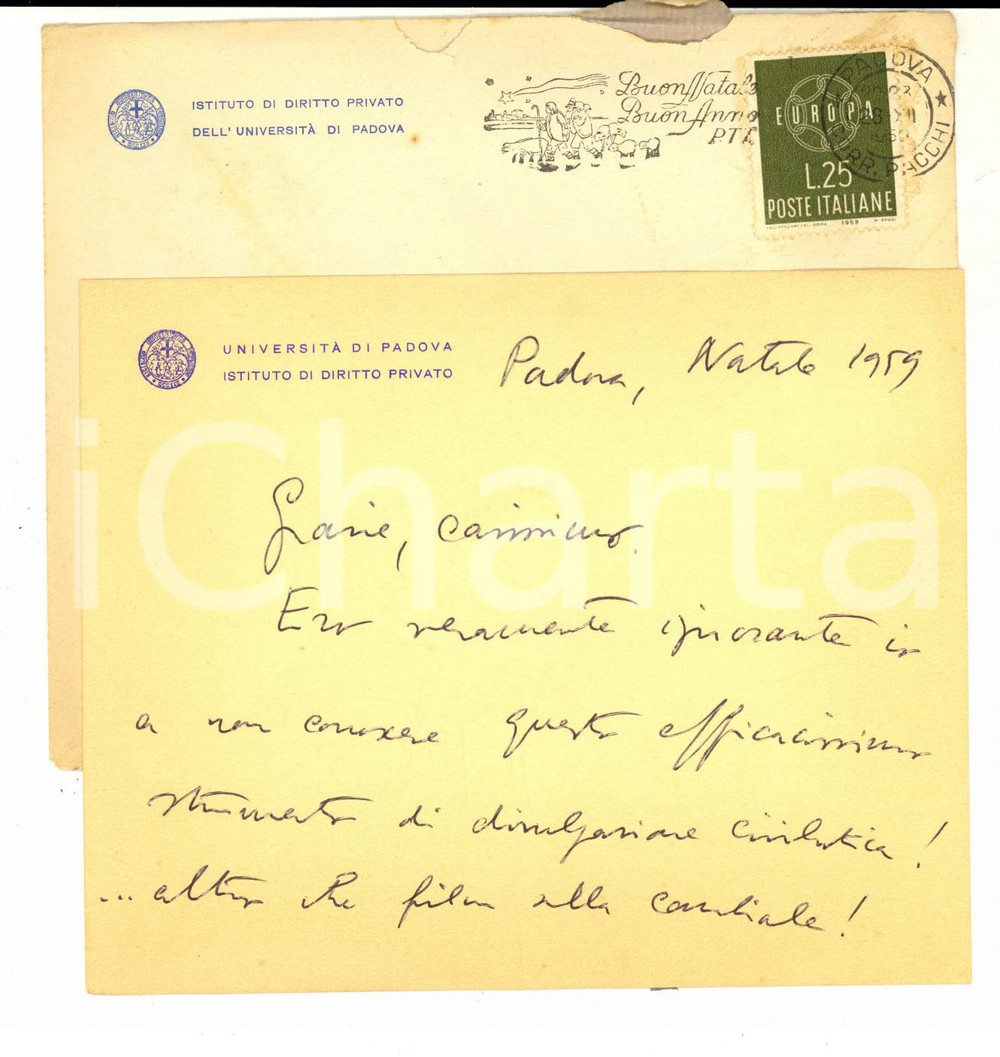 ISTITUTO DI DIRITTO PRIVATO
DELL'UNIVERSITÀ DI PADOVA
Buon Natale
Buon Anno
P.T.
EUROPA
L.25
POSTE ITALIANE
1959
PADOVA
XII
PACCHI
UNIVERSITÀ DI PADOVA
ISTITUTO DI DIRITTO PRIVATO
Padova, Natale 1959
Grazie, carissimo.
Ero veramente ignorante io
a non conoscere questo efficacissimo
strumento di divulgazione civilistica!
... altro che film sulla cambiale!
iCharta